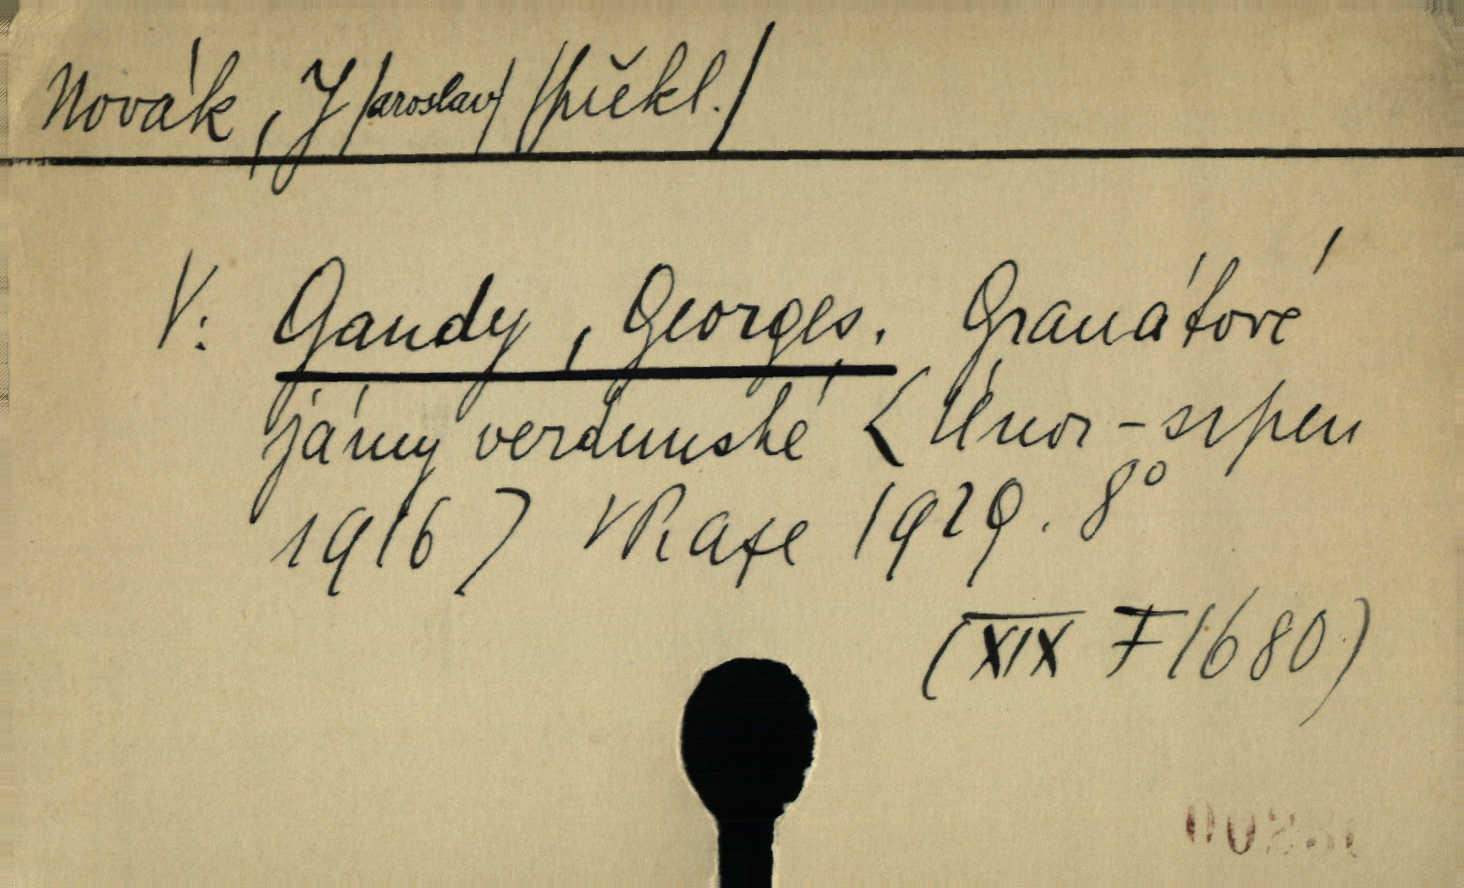 Novák, J/aroslav/ /překl./
V: Gandy, Georges. Granátové
jámy verdunské <Únor - srpen
1916> V Praze 1929. 8°
(XIX F 1680)